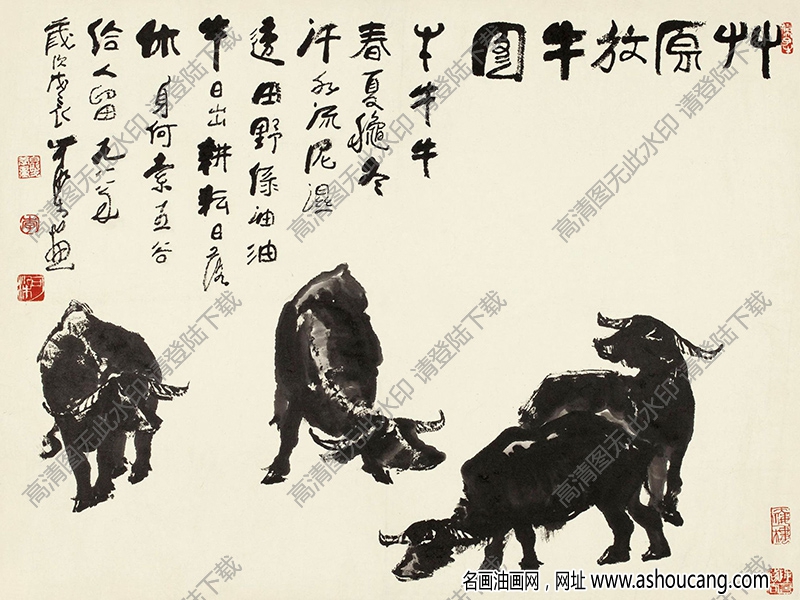 艸原放牛圖
牛牛牛
春夏穐冬
汗水流泥濕
透田野綠油油
牛日出耕耘日落
休身何索五谷
给人留
歲次戊辰
高清图无此水印 请登陆下载
高清图无此水印 请登陆下载
高清图无此水印 请登陆下载
高清图无此水印 请登陆下载
高清图无此水印 请登陆下载
名画油画网，网址 www.ashoucang.com